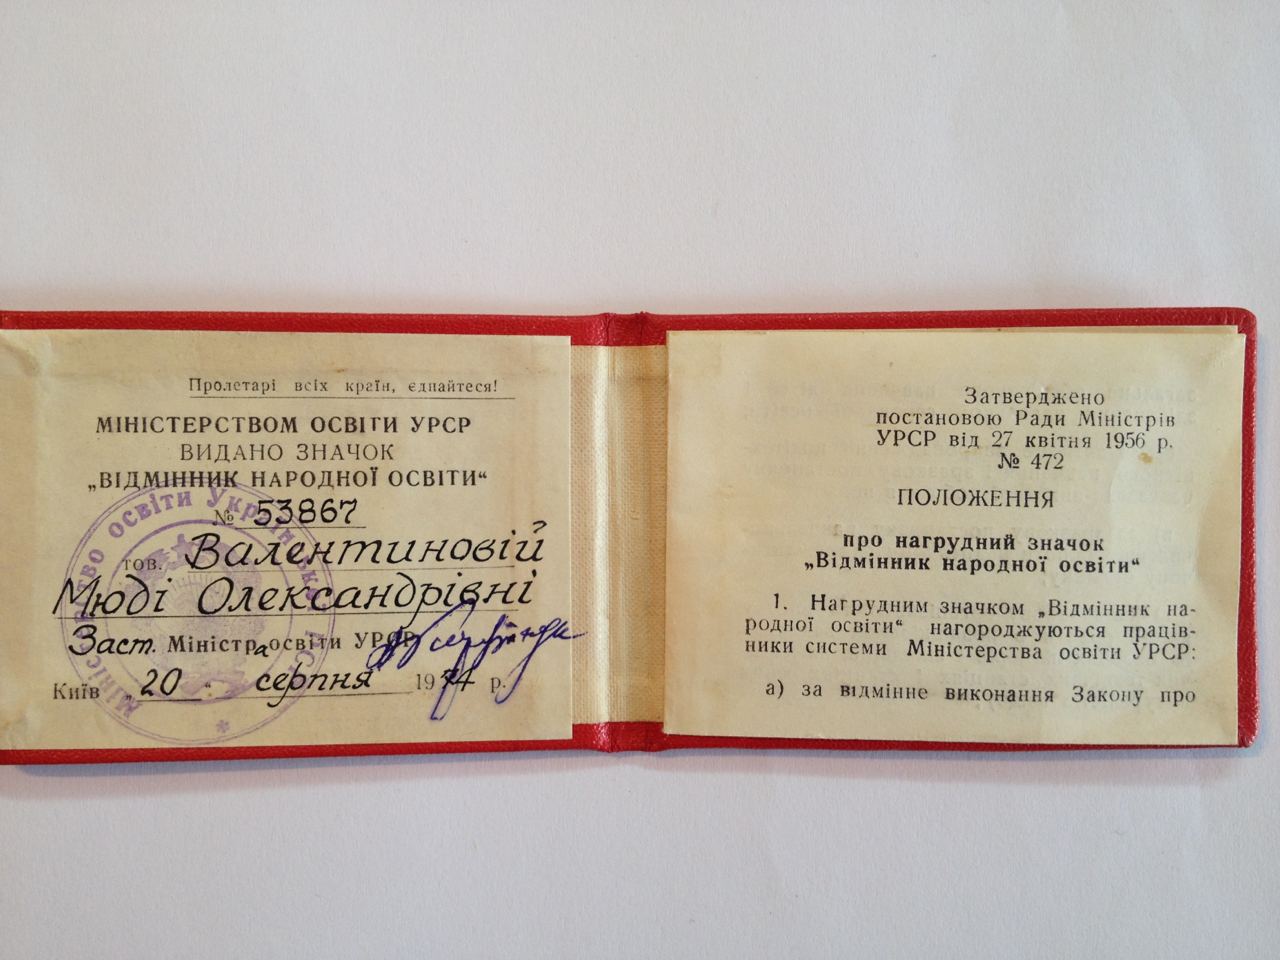 Пролетарі всіх країн, єднайтеся!
МІНІСТЕРСТВОМ ОСВІТИ УРСР
ВИДАНО ЗНАЧОК
„ВІДМІННИК НАРОДНОЇ ОСВІТИ“
№ 53867
тов. Валентиновій
Мюді Олександрівні
Заст. Міністра освіти УРСР
Київ „20“ серпня 1974 р.
Міністерство освіти Української
Затверджено
постановою Ради Міністрів
УРСР від 27 квітня 1956 р.
№ 472
ПОЛОЖЕННЯ
про нагрудний значок
„Відмінник народної освіти“
1. Нагрудним значком „Відмінник на-
родної освіти“ нагороджуються праців-
ники системи Міністерства освіти УРСР:
а) за відмінне виконання Закону про